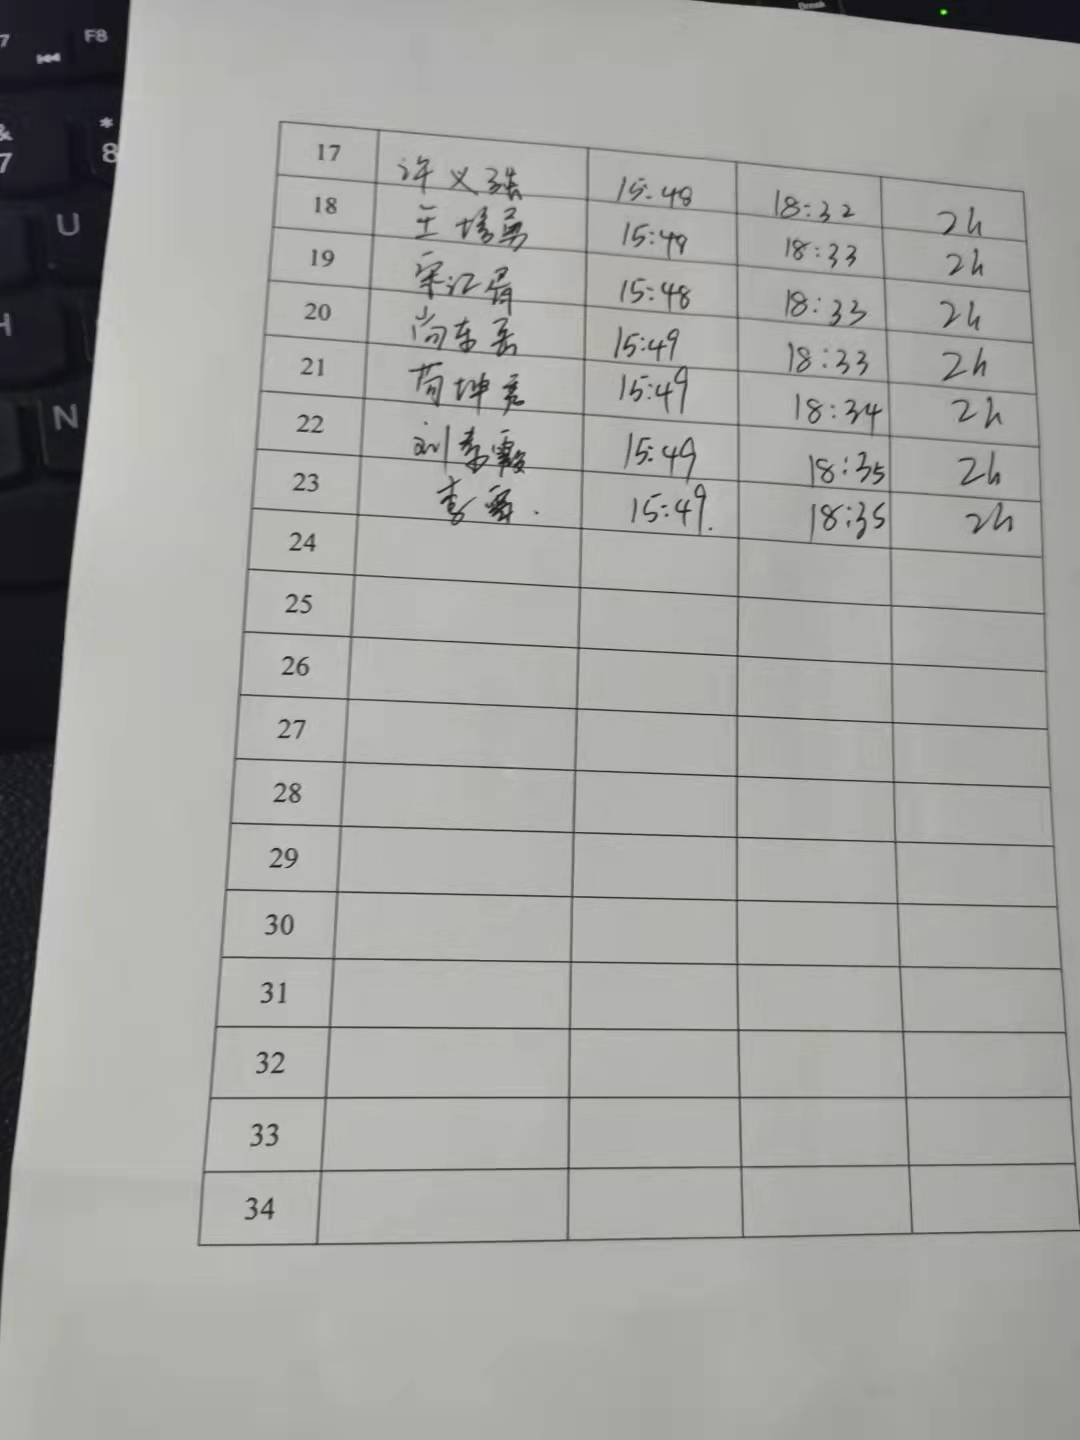 7 F8
& 7 * 8
U
H
N
Break
17 许义强 15:48 18:32 2h
18 王培勇 15:48 18:33 2h
19 宋江 15:48 18:33 2h
20 尚东岳 15:49 18:33 2h
21 苟坤亮 15:49 18:34 2h
22 刘 15:49 18:35 2h
23 李 15:49. 18:35 2h
24
25
26
27
28
29
30
31
32
33
34